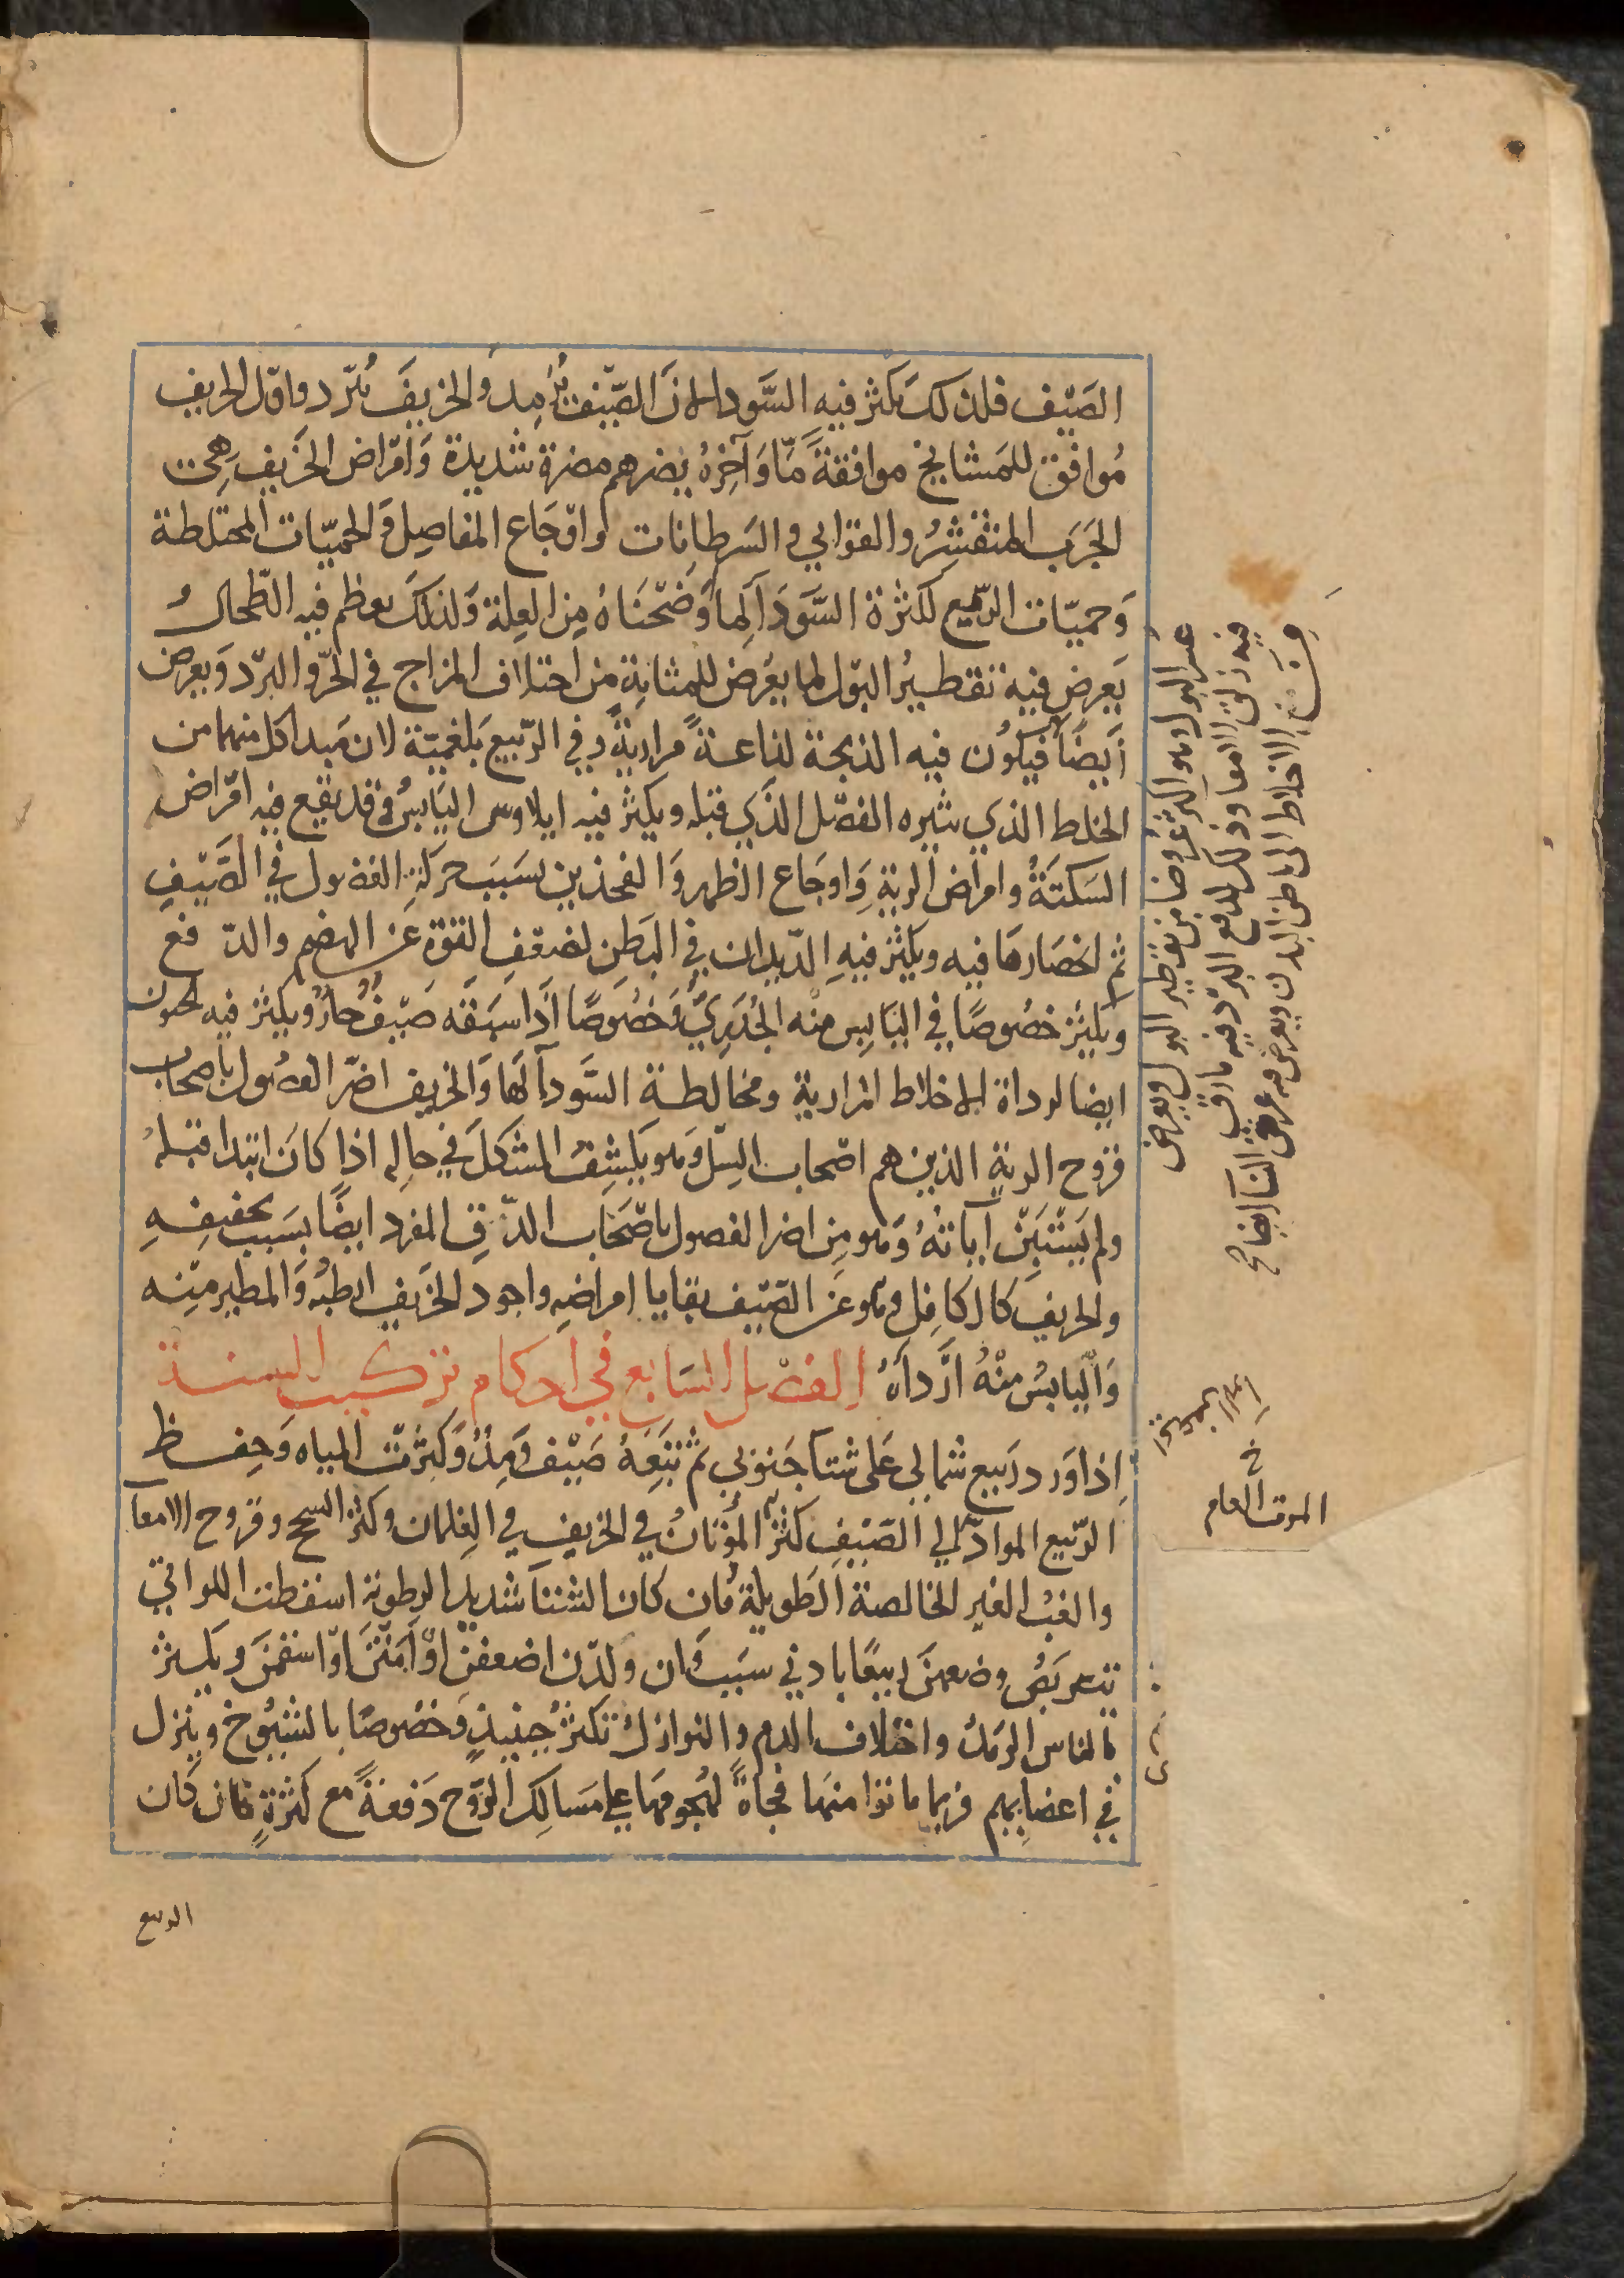 الصَيْف فلذلكَ يكثر فيه السَّوداء لانَ الصَّيْف يُرمِدُ والخريفَ يُبرّد واوّل الخريف
مُوافق للمَشايخ موافقةً مّا وَآخِرهُ يضرهم مضرة شديدة وَامْراض الخَريف هِى
الجَرَب المتقشِرُ والقوابي والسَرطانات واوْجَاع المفاصِل والحميّات المختلطة
وَحميّات الرّبع لكثرة السَّوَدَاء لِما وَضحْنَاهُ مِن العِلة وَلذلكَ يعظم فيه الطّحالُ
يَعرض فيه تقطيرُ البَول لما يعَرُض للمثانةِ من اختلاف المزاج في الحرّ والبرّد وَيعرض
أيضًا فيكوُن فيه الذبحة لذاعةً مراريةً وفي الرّبيع بَلغميّة لان مَبدا كل منهما من
الخلط الذي يثيره الفصْل الذَي قبله ويكثر فيه ايلاوس اليَابسُ وقد يقع فيه امْراض
السَكتَةُ وامراض الرية وَاوجَاع الظهر وَالفخذين بسَبَب حَركةِ الفضول في الصَّيْفِ
ثم انحصَارهَا فيه ويكثر فيهِ الدّيدان في البَطنِ لضَعْفِ القوّةِ عَن الهضم والدّفع
ويكثر خصُوصًا في اليَابِس منه الجُدَرِيُّ وَخصُوصًا اذَا سبَقَه صَيْفُ حارٌ ويكثر فيه الجنون
ايضا لرداة الاخلاط المرارية ومخالطة السَّوداء لهَا وَالخريف اضرّ الفصُول باصحاب
قروح الرية الذين هم اصْحاب السِلّ وَهو يكشِفُ المشكَل في حالِه اذا كان ابتدا قبلهُ
ولم يَسْتَبِنْ آياتهُ وَهو مِن اضر الفصول باصْحَاب الدّقِ المفرد ايضًا بسَبب تجفيفِهِ
والخريف كالكافِل وهو عَن الصّيف بقايا امراضِهِ واجود الخريف ارطبهُ وَالمطير مِنه
وَالْيابسُ منْهُ أرَّدأهُ الفصْل السَابع في احكام تركيب السنة
اِذا وَرد رَبيع شمالي عَلى شتآ جَنوبي ثم تبَعَهُ صَيْف وَمِدُ وَكثرَت المياه وَحِفظ
الرّبيع الموادّ الي الصَيْفِ كثر المُوتانُ في الخريفِ في الغِلمان وكثر السحج وقروح الامعآ
والغبُ الغير الخالصة الطَويلة فان كان الشتا شديد الرطوبة اسقطت اللواتي
تتعربَصُ وضعهنَ ربيعًا بادني سبَب وَان ولدّن اضعفن اوْ امَتْنَ اوْ اسقمنَ ويكثر
بالناس الرَمدُ واختلاف الدم والنوازلُ تكثرُ حينيذٍ وَخصُوصًا بالشيُوخ وينزل
في اعضابهم فربما ماتوا منهَا فجاةً لهُجومهَا علي مَسَالِك الرّوح دَفعةً مع كثرةٍ فان كان
الربيع
عسر البول وهو اكثر عُروضا من تقطير البول ويعرض
فيه زلق الامعا وذلك لدفع البرّد فيه ما رقّ
من الاخلاط الى باطن البدن ويعرض فيه عرق النسا ايضا صح
الموت العام